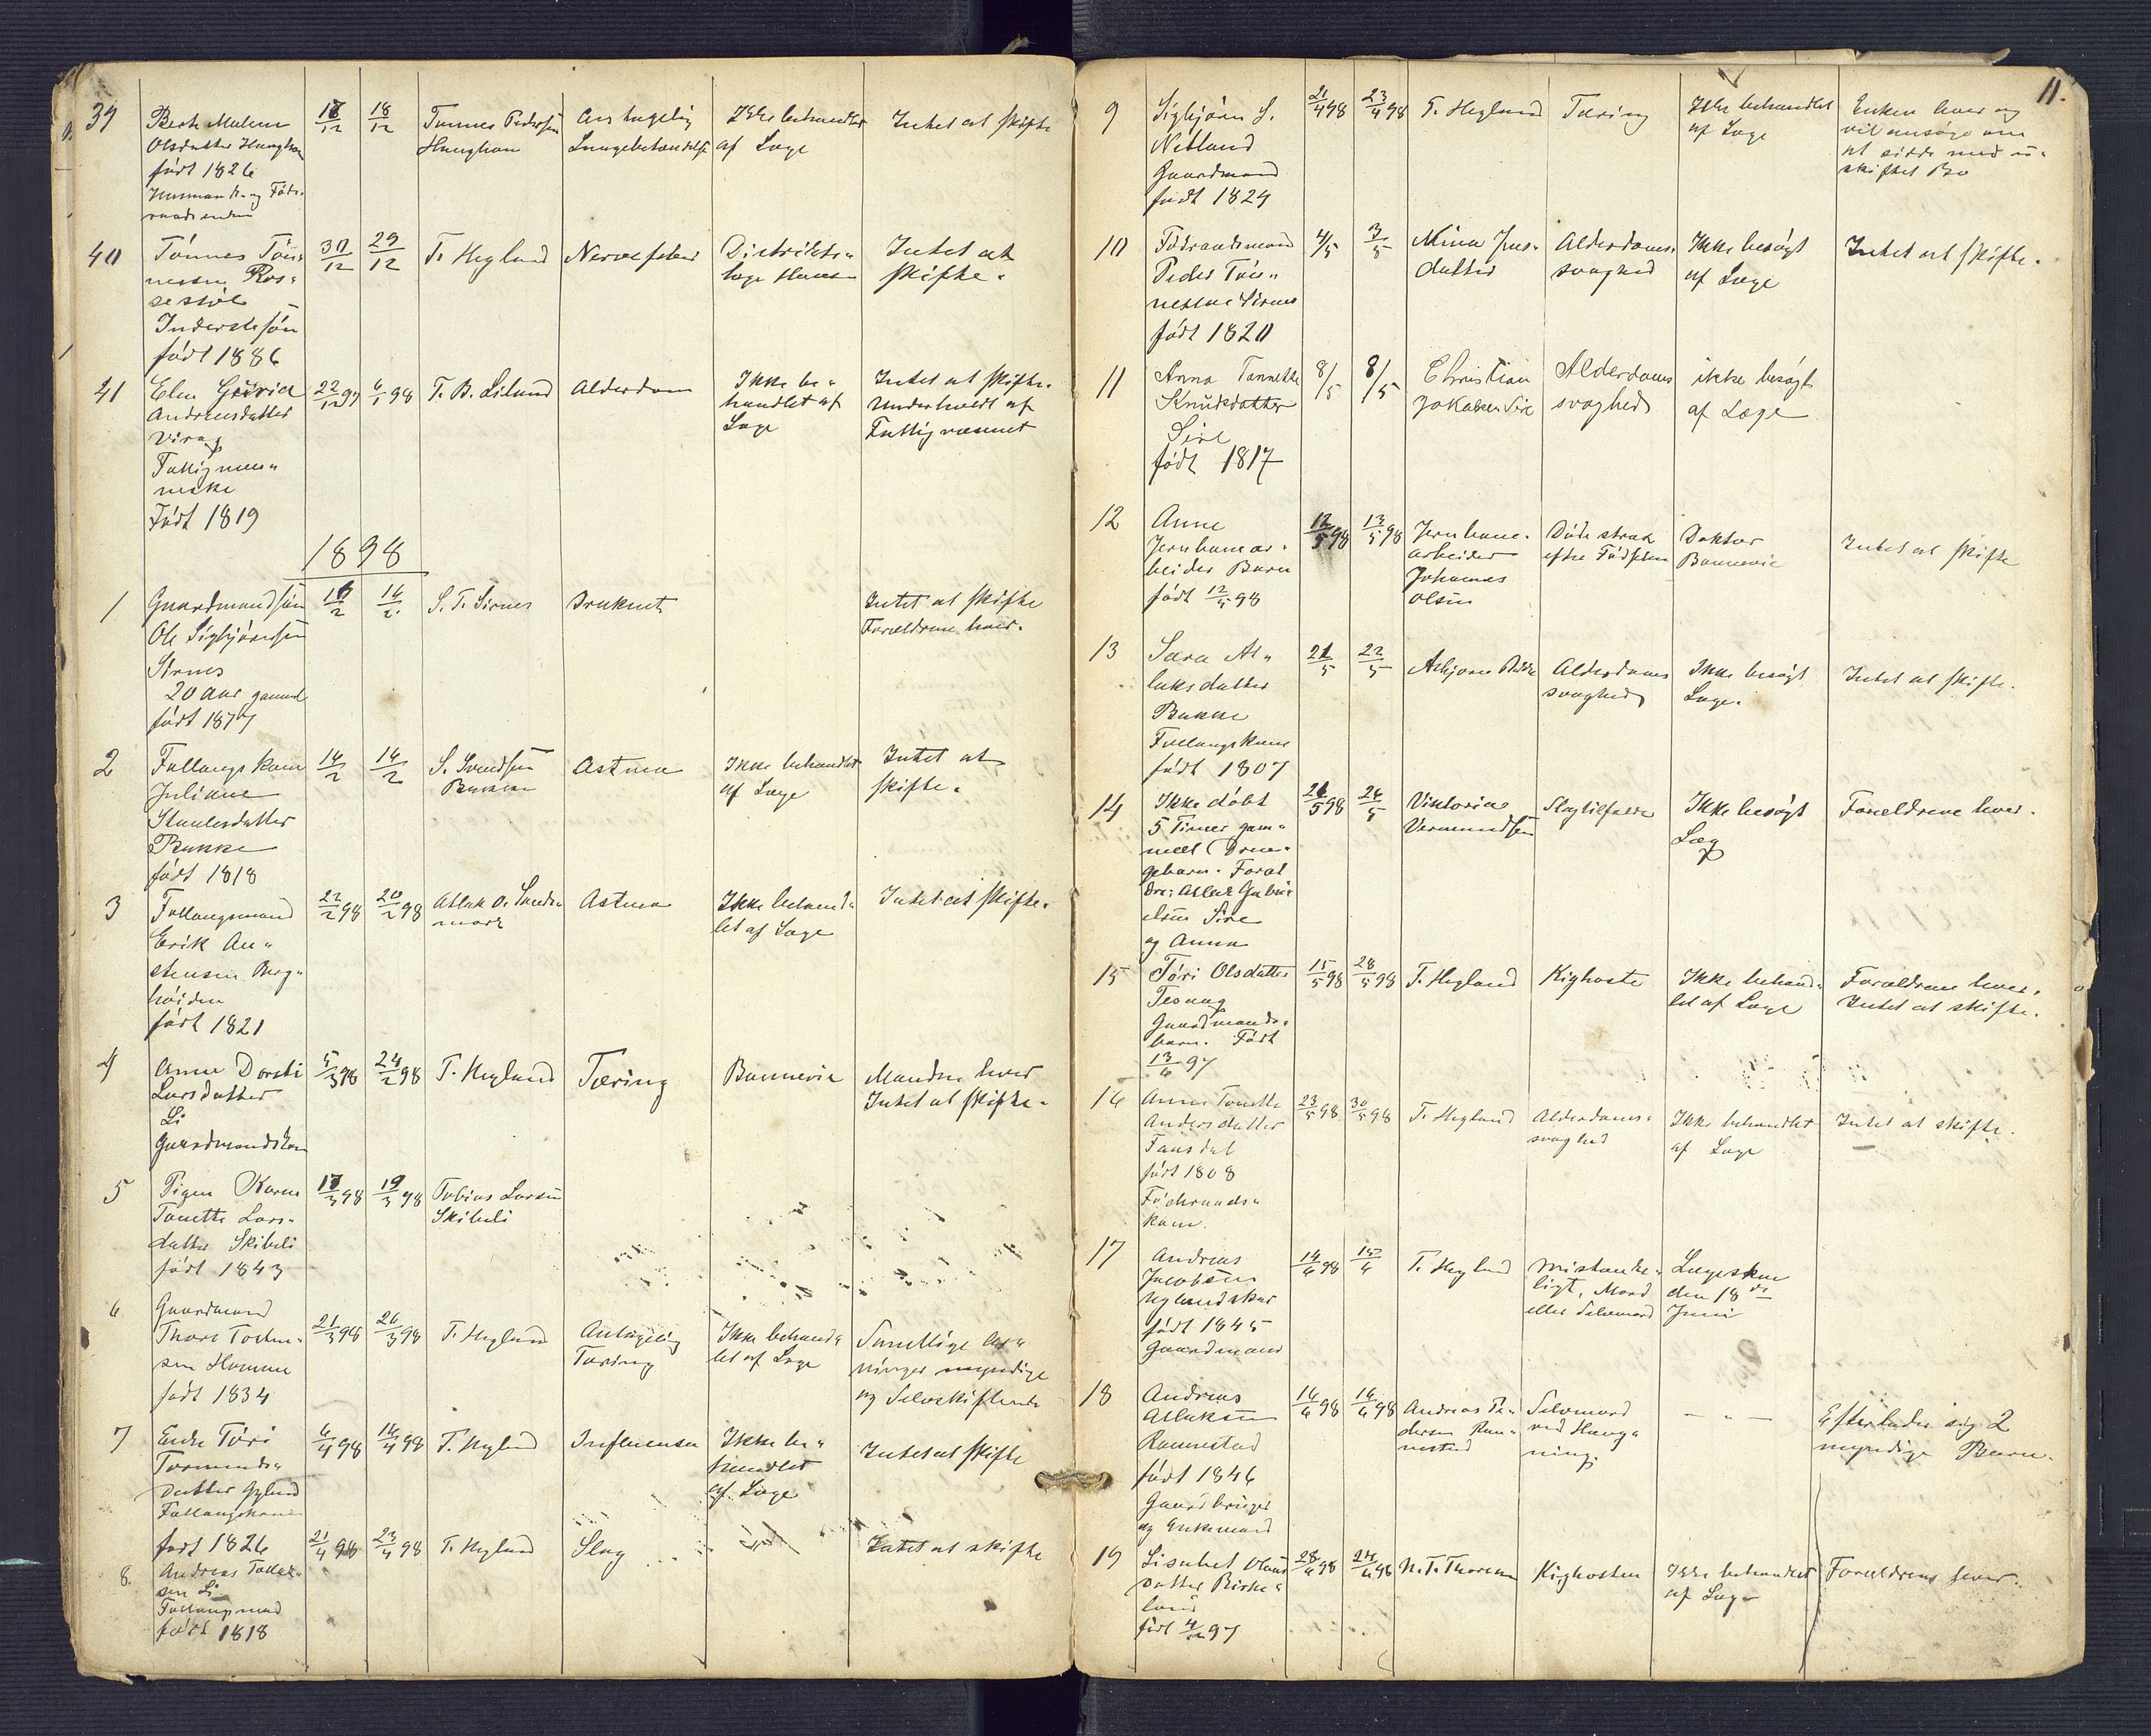 39
Berte Malene
Olsdatter Haughom
født 1826
Husmands- og Føde-
raadsenke
18/12
18/12
Tønnes Pedersen
Haughom
Antagelig
Lungebetændelse
Ikke behandlet
af Læge
Intet at skifte
40
Tønnes Tøn-
nessen Ros-
sestøl
Inderstesøn
født 1886
30/12
29/12
T. Hegland
Nervefeber
Distrikts-
læge Hansen
Intet at
skifte.
41
Elen
Andreasdatter
Virag
Fattigmen-
neske
Født 1819
22/12 97
6/1 98
T. B. Liland
Alderdom
Ikke be-
handlet af
Læge
Intet at skifte.
Underholdt af
Fattigvæsenet
1898
1
Gaardmandssøn
Ole Sigbjørnsen
Sirnes
20 Aar gammel
født 1877
16/2
14/2
S. T. Sirnes
Druknet
Intet at skifte
Forældrene lever.
2
Fattigskone
Juliane
Stanlesdatter
Bakke
født 1818
14/2
14/2
S. Svendsen
Bakke
Astma
Ikke behandlet
af Læge
Intet at
skifte.
3
Erik An-
stensen Berg-
høiden
født 1821
22/2 98
20/2 98
Atlak O.
Astma
Ikke behand-
let af Læge
Intet at skifte.
4
Anne Dorthi
Larsdatter
Li
Gaardmandskone
5/3 98
24/2 98
T. Hegland
Tæring
Bannevie
Manden lever
Intet at skifte.
5
Pigen Karen
Tonette Lars-
datter Skibeli
født 1843
17/3 98
19/3 98
Tobias Larsen
Skibeli
6
Gaardmand
Thore Torkel-
sen Homme
født 1834
21/3 98
26/3 98
T. Hegland
Antagelig
Tæring
Ikke behand-
let af Læge
Samtlige Ar-
vinger myndige
og Selvskiftende
7
Enke Tøri
Tormunds-
datter Gyland
født 1826
6/4 98
14/4 98
T. Hegland
Influensa
Ikke be-
handlet
af Læge
Intet at skifte
8
Andreas Tollak-
sen Li
født 1818
21/4 98
23/4 98
T. Hegland
Slag
Intet at skifte
11.
9
Sigbjørn S.
Netland
Gaardmand
født 1829
21/4 98
23/4 98
T. Hegland
Tæring
Ikke behandlet
af Læge
Enken lever og
vil ansøge om
at sidde med u-
skiftet Bo
10
Føderaadsmand
Peder Tøn-
nessen Sirnes
født 1820
4/5
3/5
Mina Jens-
datter
Alderdoms-
svaghed
Ikke besøgt
af Læge
Intet at skifte.
11
Anna Tonnette
Knudsdatter
Sire
født 1817
8/5
8/5
Christian
Jakobsen Sire
Alderdoms
svaghed
ikke besøgt
af Læge
12
Anne
Jernbanear-
beider Barn
født 12/5 98
12/5 98
13/5 98
Jernbane-
arbeider
Johannes
Olsen
Døde strax
efter Fødselen
Doktor
Bannevie
Intet at skifte
13
Sara At-
laksdatter
Bakke
født 1807
21/5
22/5
Asbjørn Bakke
Alderdoms
svaghed
Ikke besøgt
Læge.
Intet at skifte.
14
Ikke døbt
5 Timer gam-
melt Dren-
gebarn. Foræl
dre: Atlak Gabri
elsen Sire
og Anna
26/5 98
26/5
Viktoria
Vermundsen
Slagtilfælde
Ikke besøgt
Læg
Forældrene lever.
15
Tøri Olsdatter
Tesaag
Gaardmands-
barn. Født
13/6 97
15/5 98
28/5 98
T. Hegland
Kighoste
Ikke behand-
let af Læge
Forældrene lever.
Intet at skifte.
16
Anne Tonette
Andersdatter
Fansdal
født 1808
Føderaads-
kone.
23/5 98
30/5 98
T. Hegland
Alderdoms-
svaghed
Ikke behandlet
af Læge
Intet at skifte.
17
Andreas
Jacobsen
Uglandskar
født 1845
Gaardmand
14/6 98
15/6
T. Hegland
Mistænke-
ligt, Mord
eller Selvmord
Lægeskue
den 18de
Juni
18
Andreas
Atlaksen
Ramnestad
født 1846
Gaardbruger
og Enkemand
16/6 98
16/6 98
Andreas Pe-
dersen Ram-
nestad
Selvmord
ved Hæng-
ning.
— „ —
Efterlader sig 2
myndige Børn.
19
Lisabet Olaus
datter Birke-
land
født 4/12 97
28/6 98
24/6 98
N. T. Thorsen
Kighosten
Ikke behandlet
af Læge
Forældrene lever.